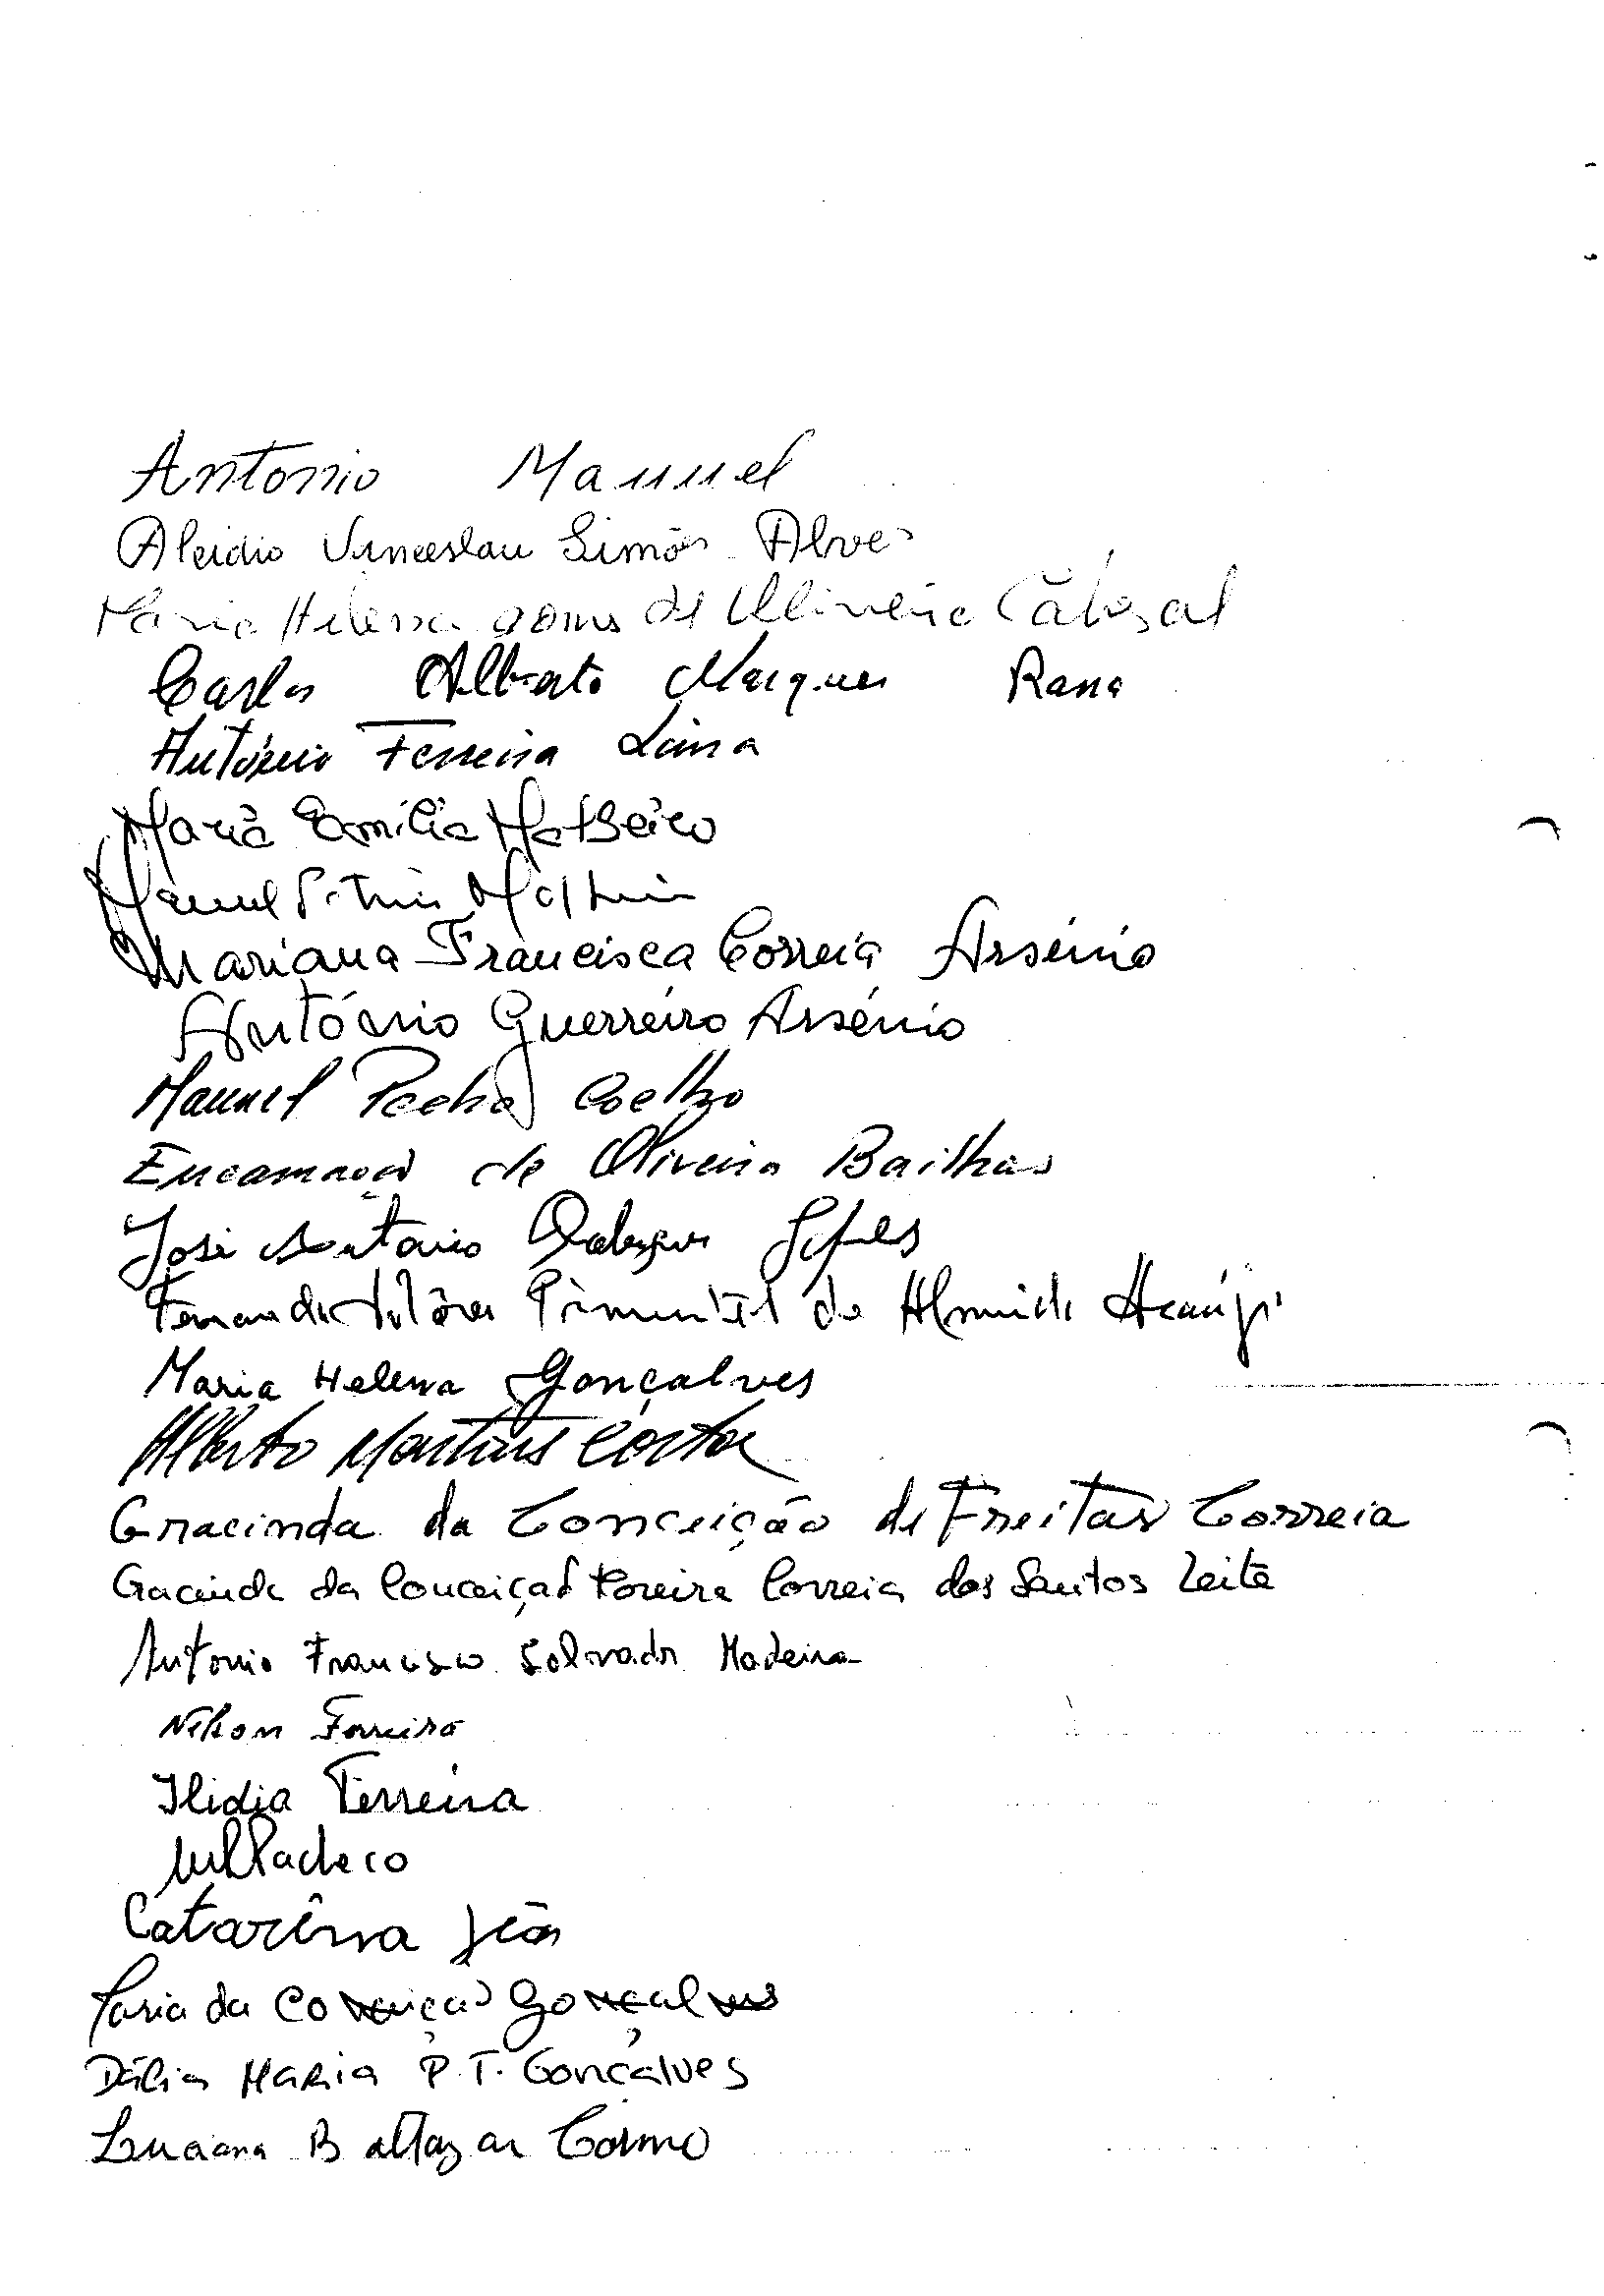 Antonio Manuel
Alcidio Venceslau Simões Alves
Maria Helena gomes de Oliveira Cabeçal
Carlos Alberto Marques Rana
António Ferreira Lima
Maria Emília Matseiro
Manuel
Mariana Francisca Correia Arsénio
António Guerreiro Arsénio
Manuel Pecha Coelho
Encarnação de Oliveira Bailhas
José António
Fernanda Pimentel de Almeida Araújo
Maria Helena Gonçalves
Alberto Martins Costa
Gracinda da Conceição de Freitas Correia
Gracinda da Conceição Pereira Correia dos Santos Leite
Antonio Francisco Salvador Madeira
Nelson Ferreira
Ilidia Ferreira
Pacheco
Catarina
Maria da Conceição Gonçalves
Dália Maria P. T. Gonçalves
Luciana Baltazar Cosmo